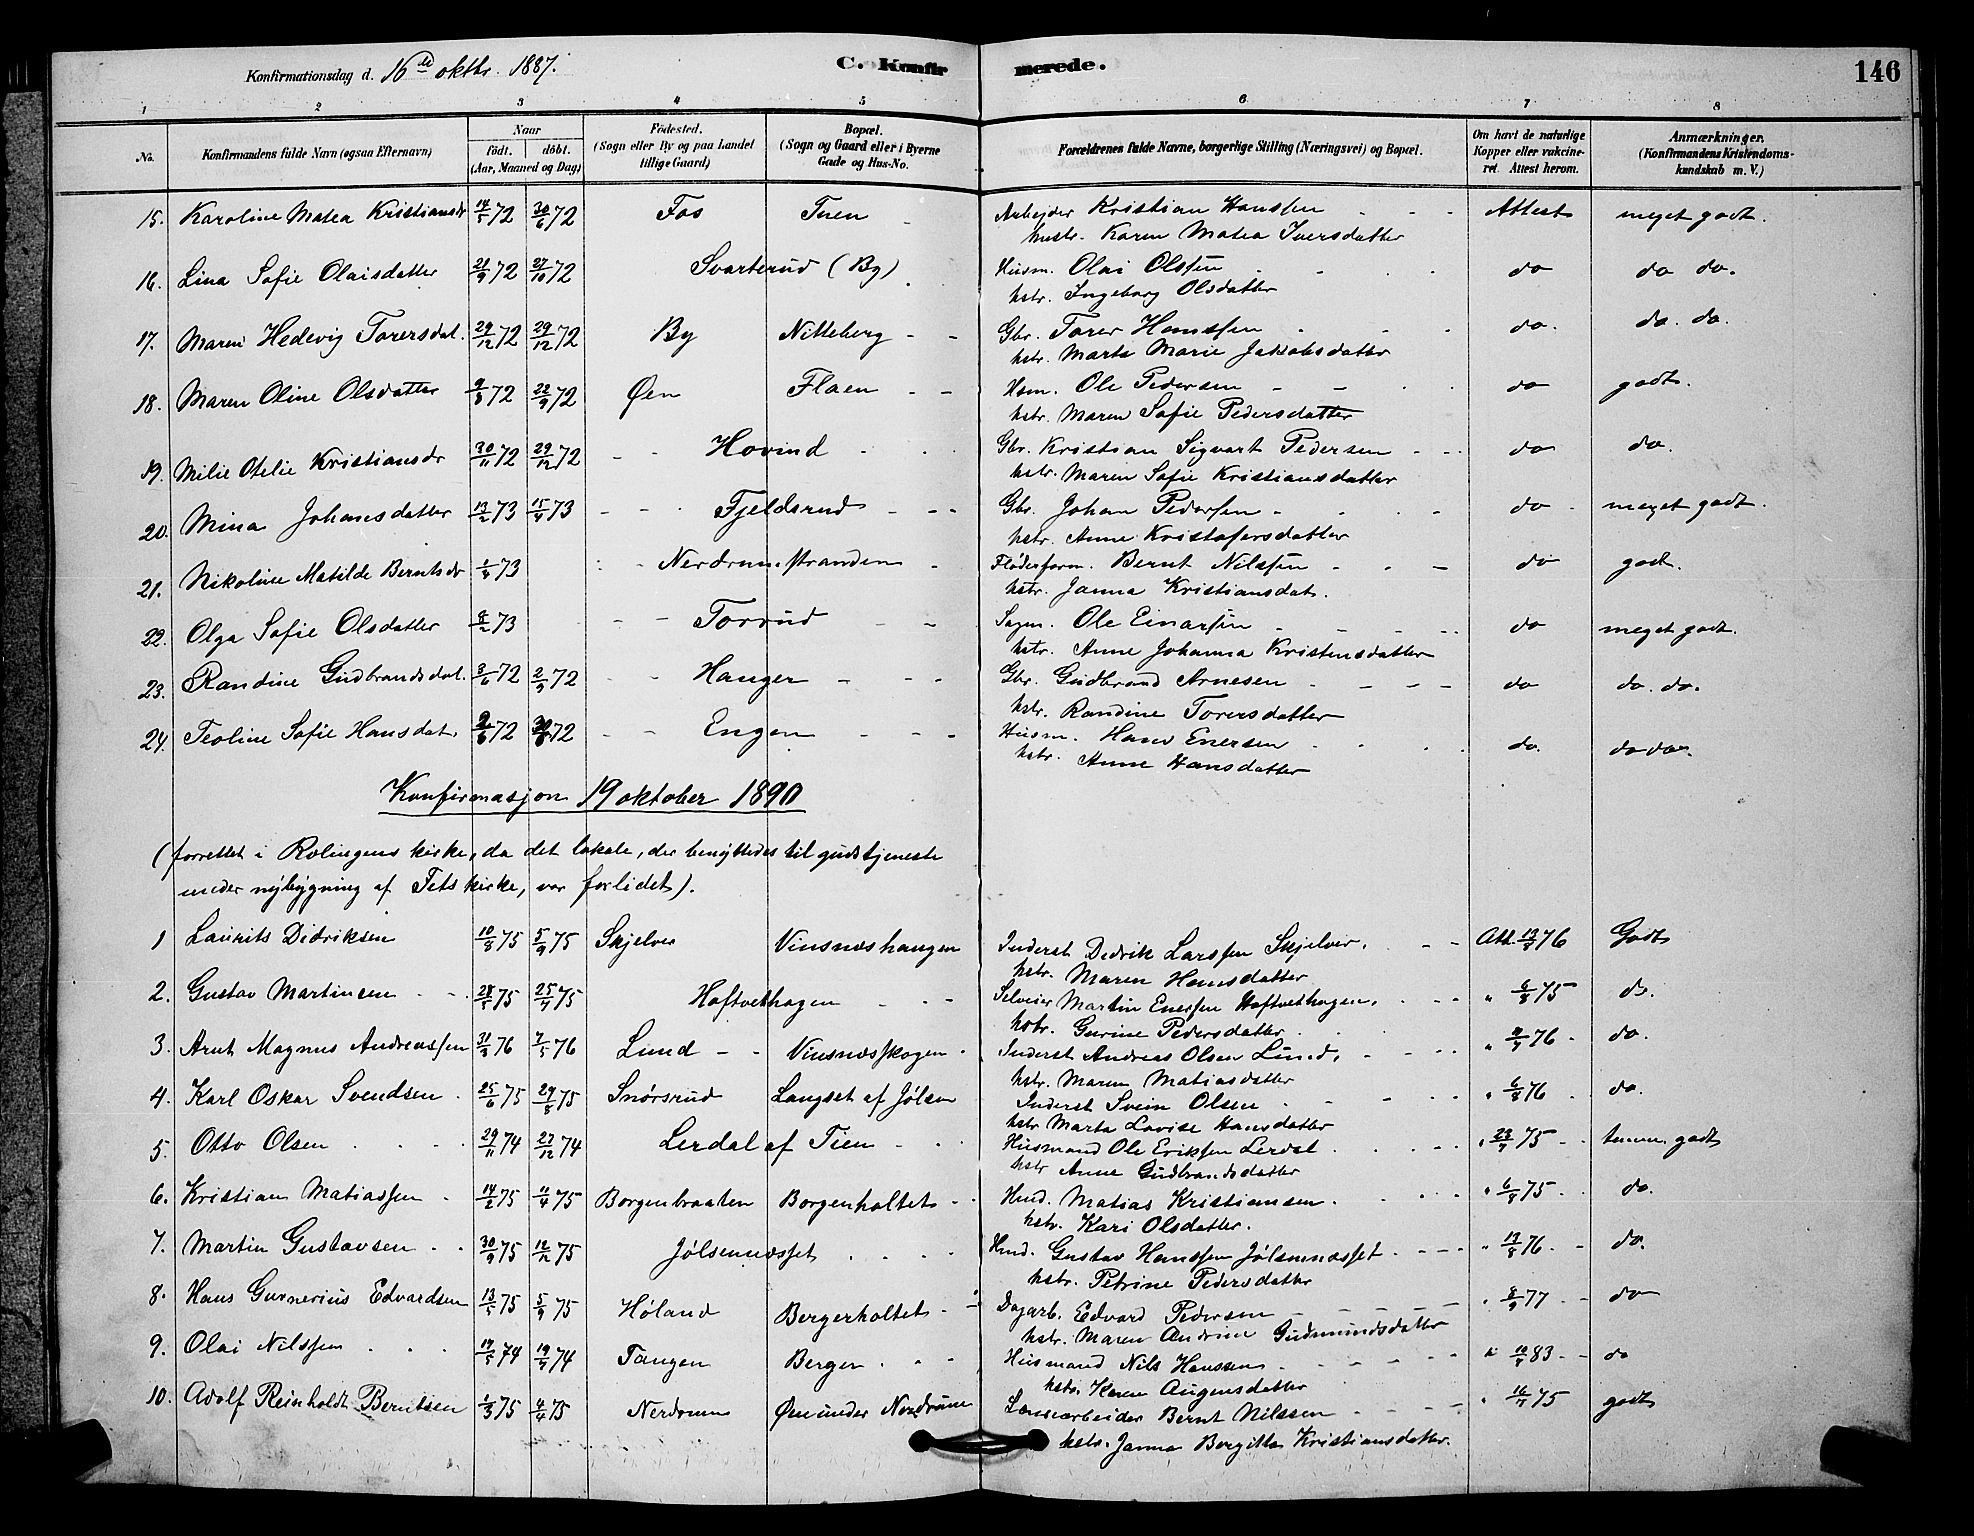 Konfirmationsdag d. 16de oktbr. 1887. C. Konfirmerede. 146
1 2 3 4 5 6 7 8
No. Konfirmandens fulde Navn (ogsaa Efternavn) Naar födt. döbt. (Aar, Maaned og Dag) Födested. (Sogn eller By og paa Landet tillige Gaard) Bopæl. (Sogn og Gaard eller i Byerne Gade og Hus-No. Forældrenes fulde Navne, borgerlige Stilling (Næringsvei) og Bopæl. Om havt de naturlige Kopper eller vakcineret. Attest herom. Anmærkninger. (Konfirmandens Kristendomskundskab m. V.)
15. Karoline Matea Kristiansdr 14/5 72 30/6 72 Fos Tuen Arbejder Kristian Hanssen Attest meget godt.
hustr. Karen Matea Iversdatter
16. Lina Sofie Olaisdatter 21/9 72 27/10 72 Svarterud (By) Husm. Olai Olsen do do do.
hstr. Ingeborg Olsdatter
17. Maren Hedevig Torersdat. 29/12 72 By Nitteberg Gbr. Torer Hanssen do. do. do.
hstr. Marte Marie Jakobsdatter
18. Maren Oline Olsdatter 72 22/9 72 Øen Flaen Hsm. Ole Pedersen do godt.
hstr. Maren Sofie Pedersdatter
19. Milie Otelie Kristiansdr 30/11 72 29/12 72 Hovind Gbr. Kristian Sigvart Pedersen do do.
hstr. Maren Sofie Kristiansdatter
20. Mina Johansdatter 13/2 73 15/4 73 Fjeldsrud Gbr. Johan Pedersen do meget godt.
hstr. Anne Kristofersdatter
21. Nikoline Matilde Berntsdr 73 Nerdrumstranden Fløderform. Bernt Nilssen do godt.
hstr. Janna Kristiansdat.
22. Olga Sofie Olsdatter 73 Torrud Sagm. Ole Einarsen do meget godt.
hstr. Anne Johanna Kristensdatter
23. Randine Gudbrandsdat. 72 2/9 72 Hanger Gbr. Gudbrand Arnesen do do. do.
hstr. Randine Torersdatter
24. Teoline Sofie Hansdat. 72 72 Engen Husm. Hans Enersen do. do do.
hstr. Anne Hansdatter
Konfirmasjon 19 oktober 1890
(forrettet i Rolingens kirke, da det lokale, der benyttedes til gudstjeneste
under nybygning af Fets kirke, var forlidet).
1 Laurits Didriksen 10/8 75 5/9 75 Skjelver Vinsneshangen Inderst Didrik Larssen Skjelver. Att. 76 Godt
hstr. Maren Hansdatter
2. Gustav Martinsen 75 75 Hoftvethagen Selveier Martin Enersen Hoftvethagen. " 75 do.
hstr. Gurine Pedersdatter
3. Arnt Magnus Andreassen 31/3 76 7/5 76 Lund Vinsnesskogen Inderst Andreas Olsen Lund. " 76 do.
hstr. Maren Matiasdatter
4. Karl Oskar Svendsen 25/6 75 29/8 75 Snørsrud Langset af Jølsen Inderst Svein Olsen " 76 do.
hstr Marta Lovise Hansdatter
5. Otto Olsen 29/11 74 27/12 74 Lerdal af Tien Husmand Ole Eriksen Lerdal " 75 temm. godt
hstr Anne Gudbrandsdatter
6. Kristian Matiassen 14/2 75 11/4 75 Borgenbraaten Borgenholtet Hmd. Matias Kristiansen. " 75 do.
hstr. Kari Olsdatter.
7. Martin Gustavsen 30/9 75 12/12 75 Jølsennesset Hmd. Gustav Hanssen Jølsennesset " 76. do.
hstr. Petrine Pedersdatter
8. Hans Gunnerius Edvardsen 13/5 75 5/9 75 Høland Bergerholtet Dagarb. Edvard Pedersen " 77 do
hstr. Maren Andrine Gudmundsdatter
9. Olai Nilssen 74 74 Tangen Berger Husmand Nils Hanssen " 83 do
hstr. Karen Augensdatter
10. Adolf Reinholdt Berntsen 1/3 75 4/4 75 Nerdrum Øen under Nerdrum Lænsearbeider Bernt Nilssen " 75 godt
hstr. Janna Bergitte Kristiansdatter.